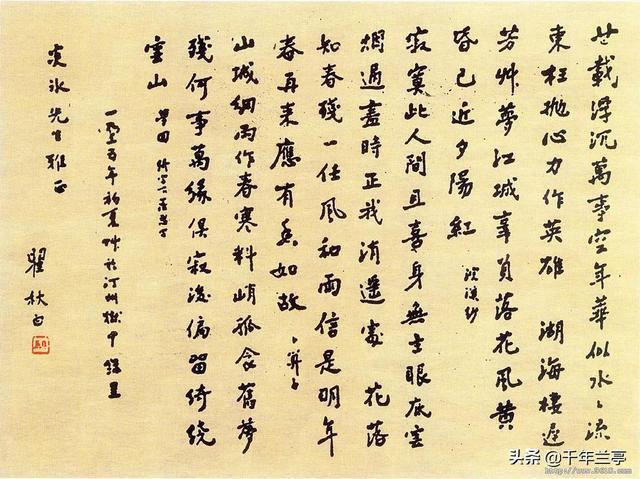 廿載浮沉萬事空年華似水ミ流
東枉拋心力作英雄 湖海棲遲
芳艸夢江城辜負落花風黃
昏已近夕陽紅 浣溪紗
寂寞此人間且喜身無主眼底雲
烟過盡時正我消遙處 花落
知春殘一任風和雨信是明年
春再來應有香如故 卜算子
山城細雨作春寒料峭孤衾舊夢
殘何事萬緣俱寂後偏留綺繞
雲山 夢回
年初夏 於汀州獄中 錄呈
炎冰先生雅正
瞿秋白
头条 @千年兰亭